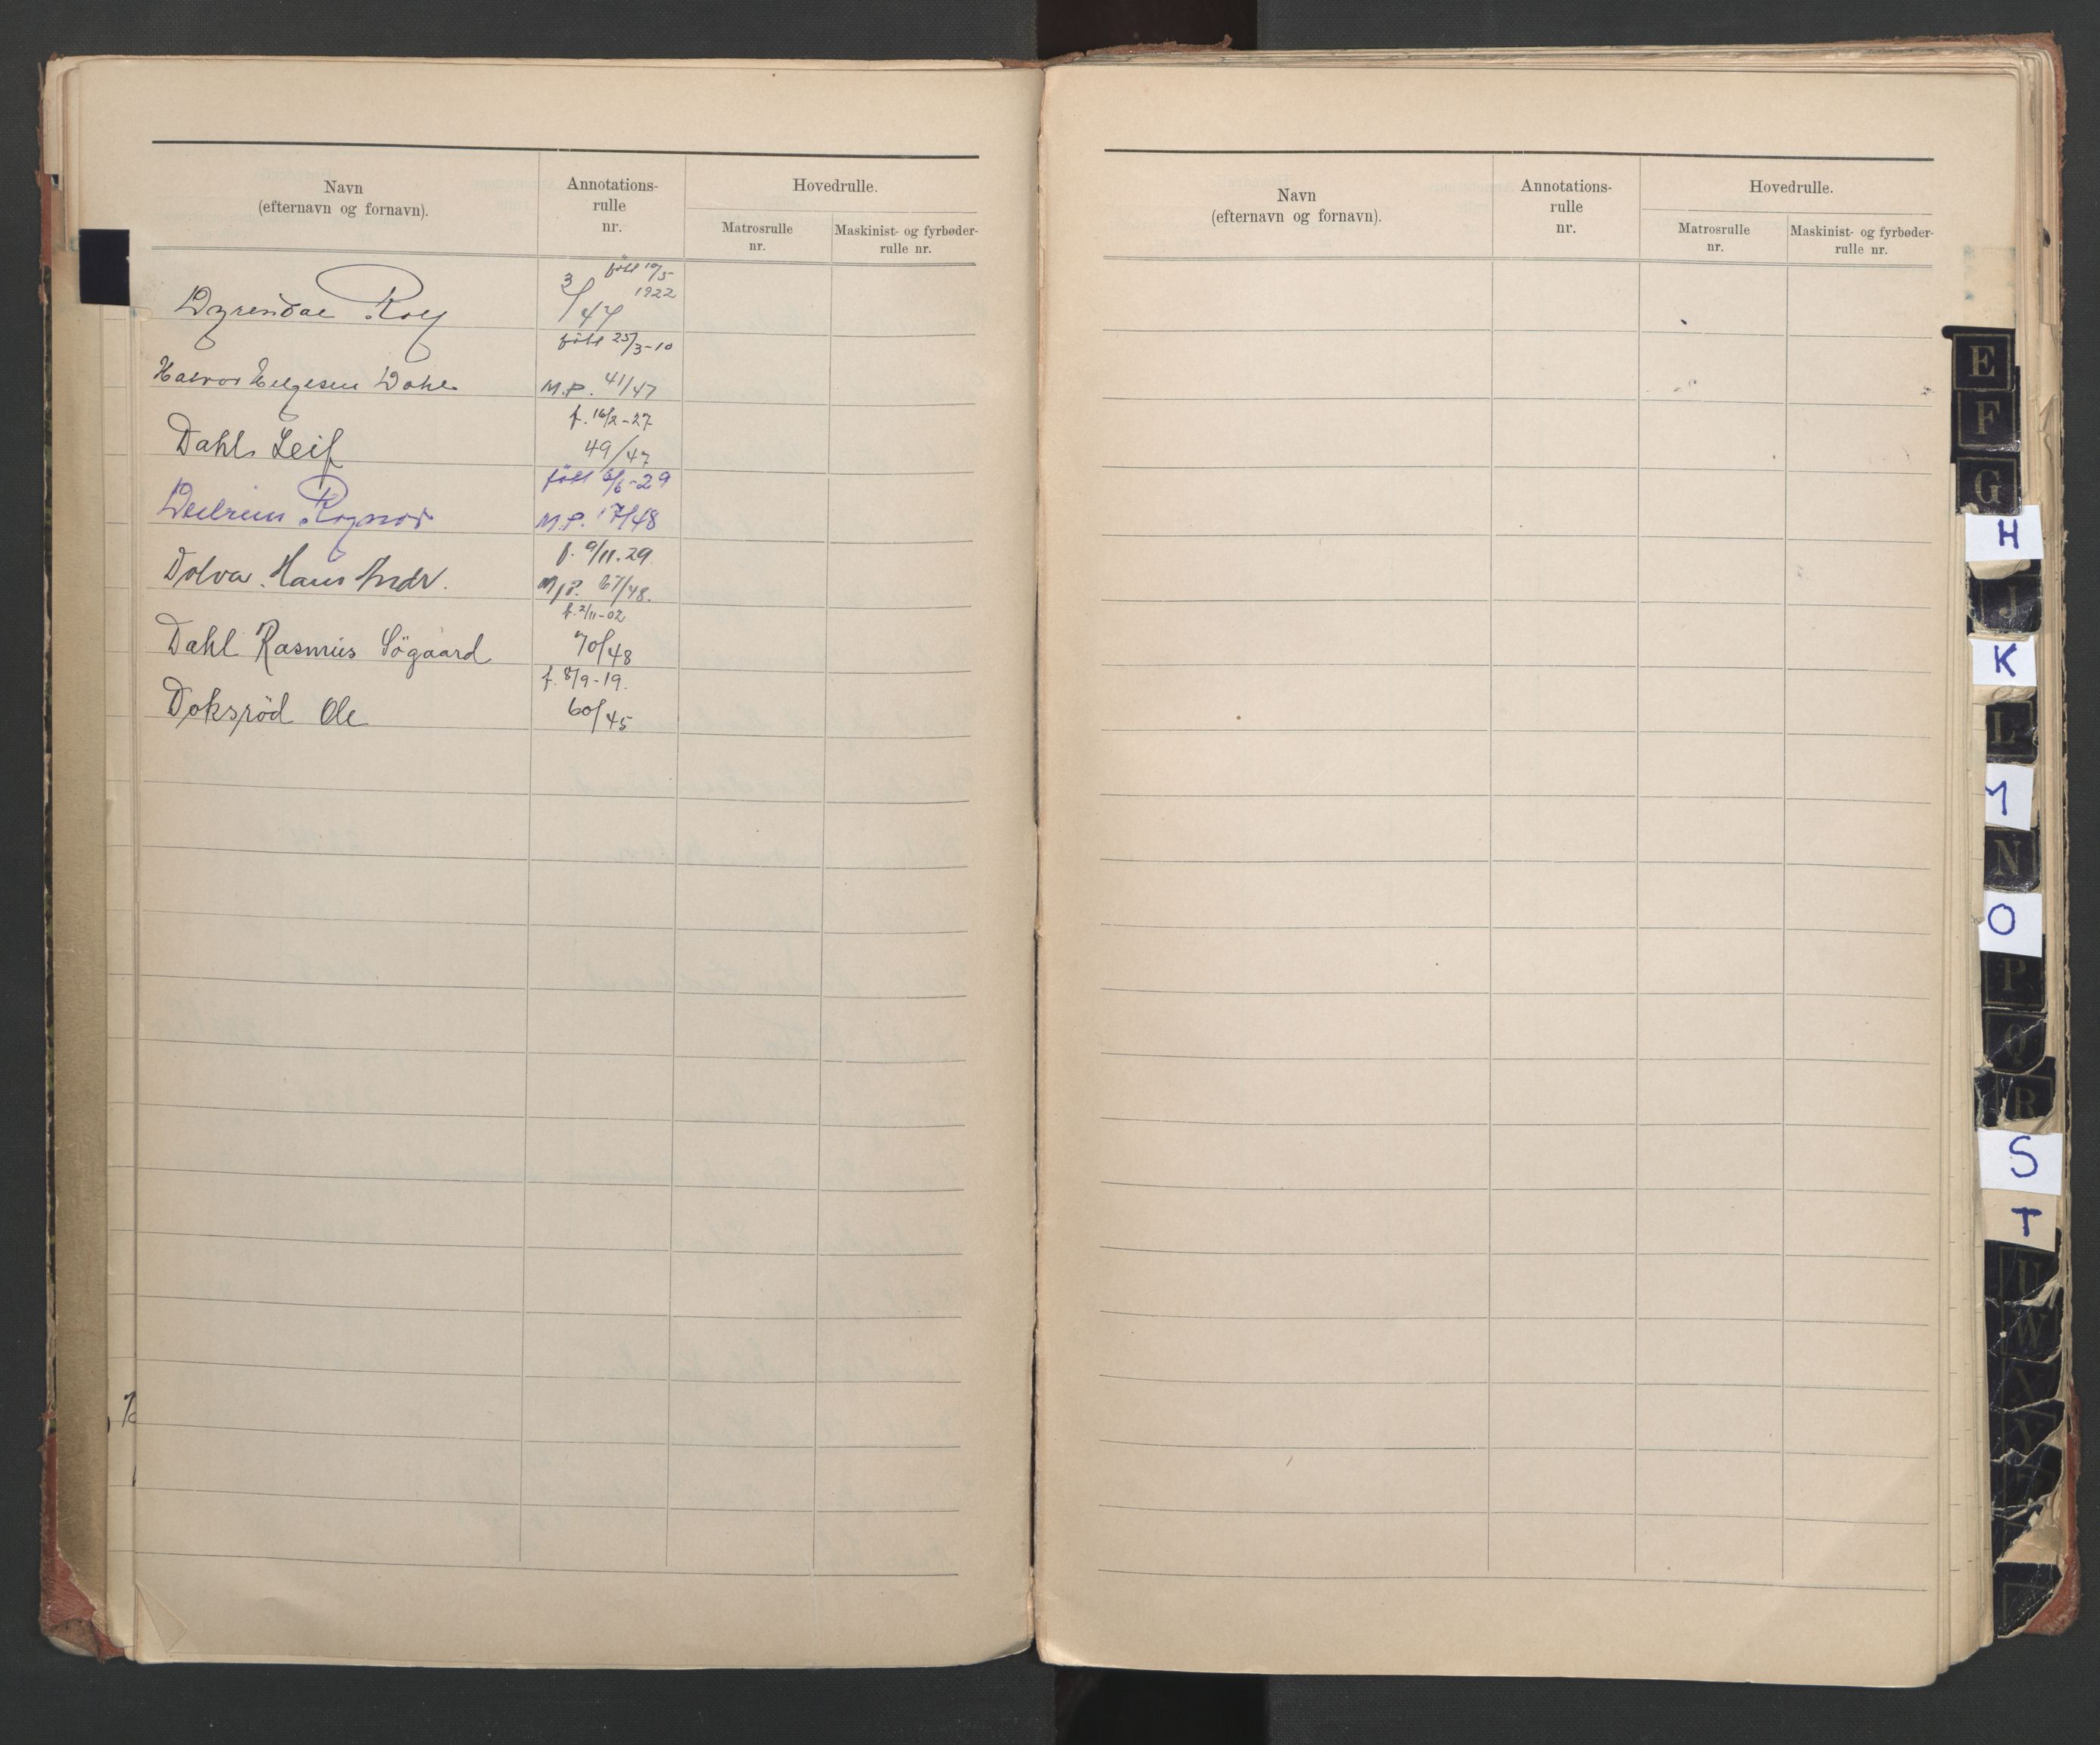 Navn
(efternavn og fornavn).
Annotations-
rulle
nr.
Hovedrulle.
Matrosrulle
nr.
Maskinist- og fyrbøder-
rulle nr.
født 10/5
1922
Dyrendal Rolf 3/47
født 25/3-10
Halvor Helgesen Dahl M.P. 41/47
f. 16/2-27
Dahl Leif 49/47
født 6/6-29
Ragnar M.P. 17/48
f. 9/11.29
Dolva. Hans Andr. M.P. 67/48.
f. 2/11-02
Dahl Rasmus Sögaard 70/48
f. 8/9-19.
Doksrød Ole 60/45
Navn
(efternavn og fornavn).
Annotations-
rulle
nr.
Hovedrulle.
Matrosrulle
nr.
Maskinist- og fyrbøder-
rulle nr.
E
F
G
H
J
K
L
M
N
O
P
Q
R
S
T
U
W
X
Y